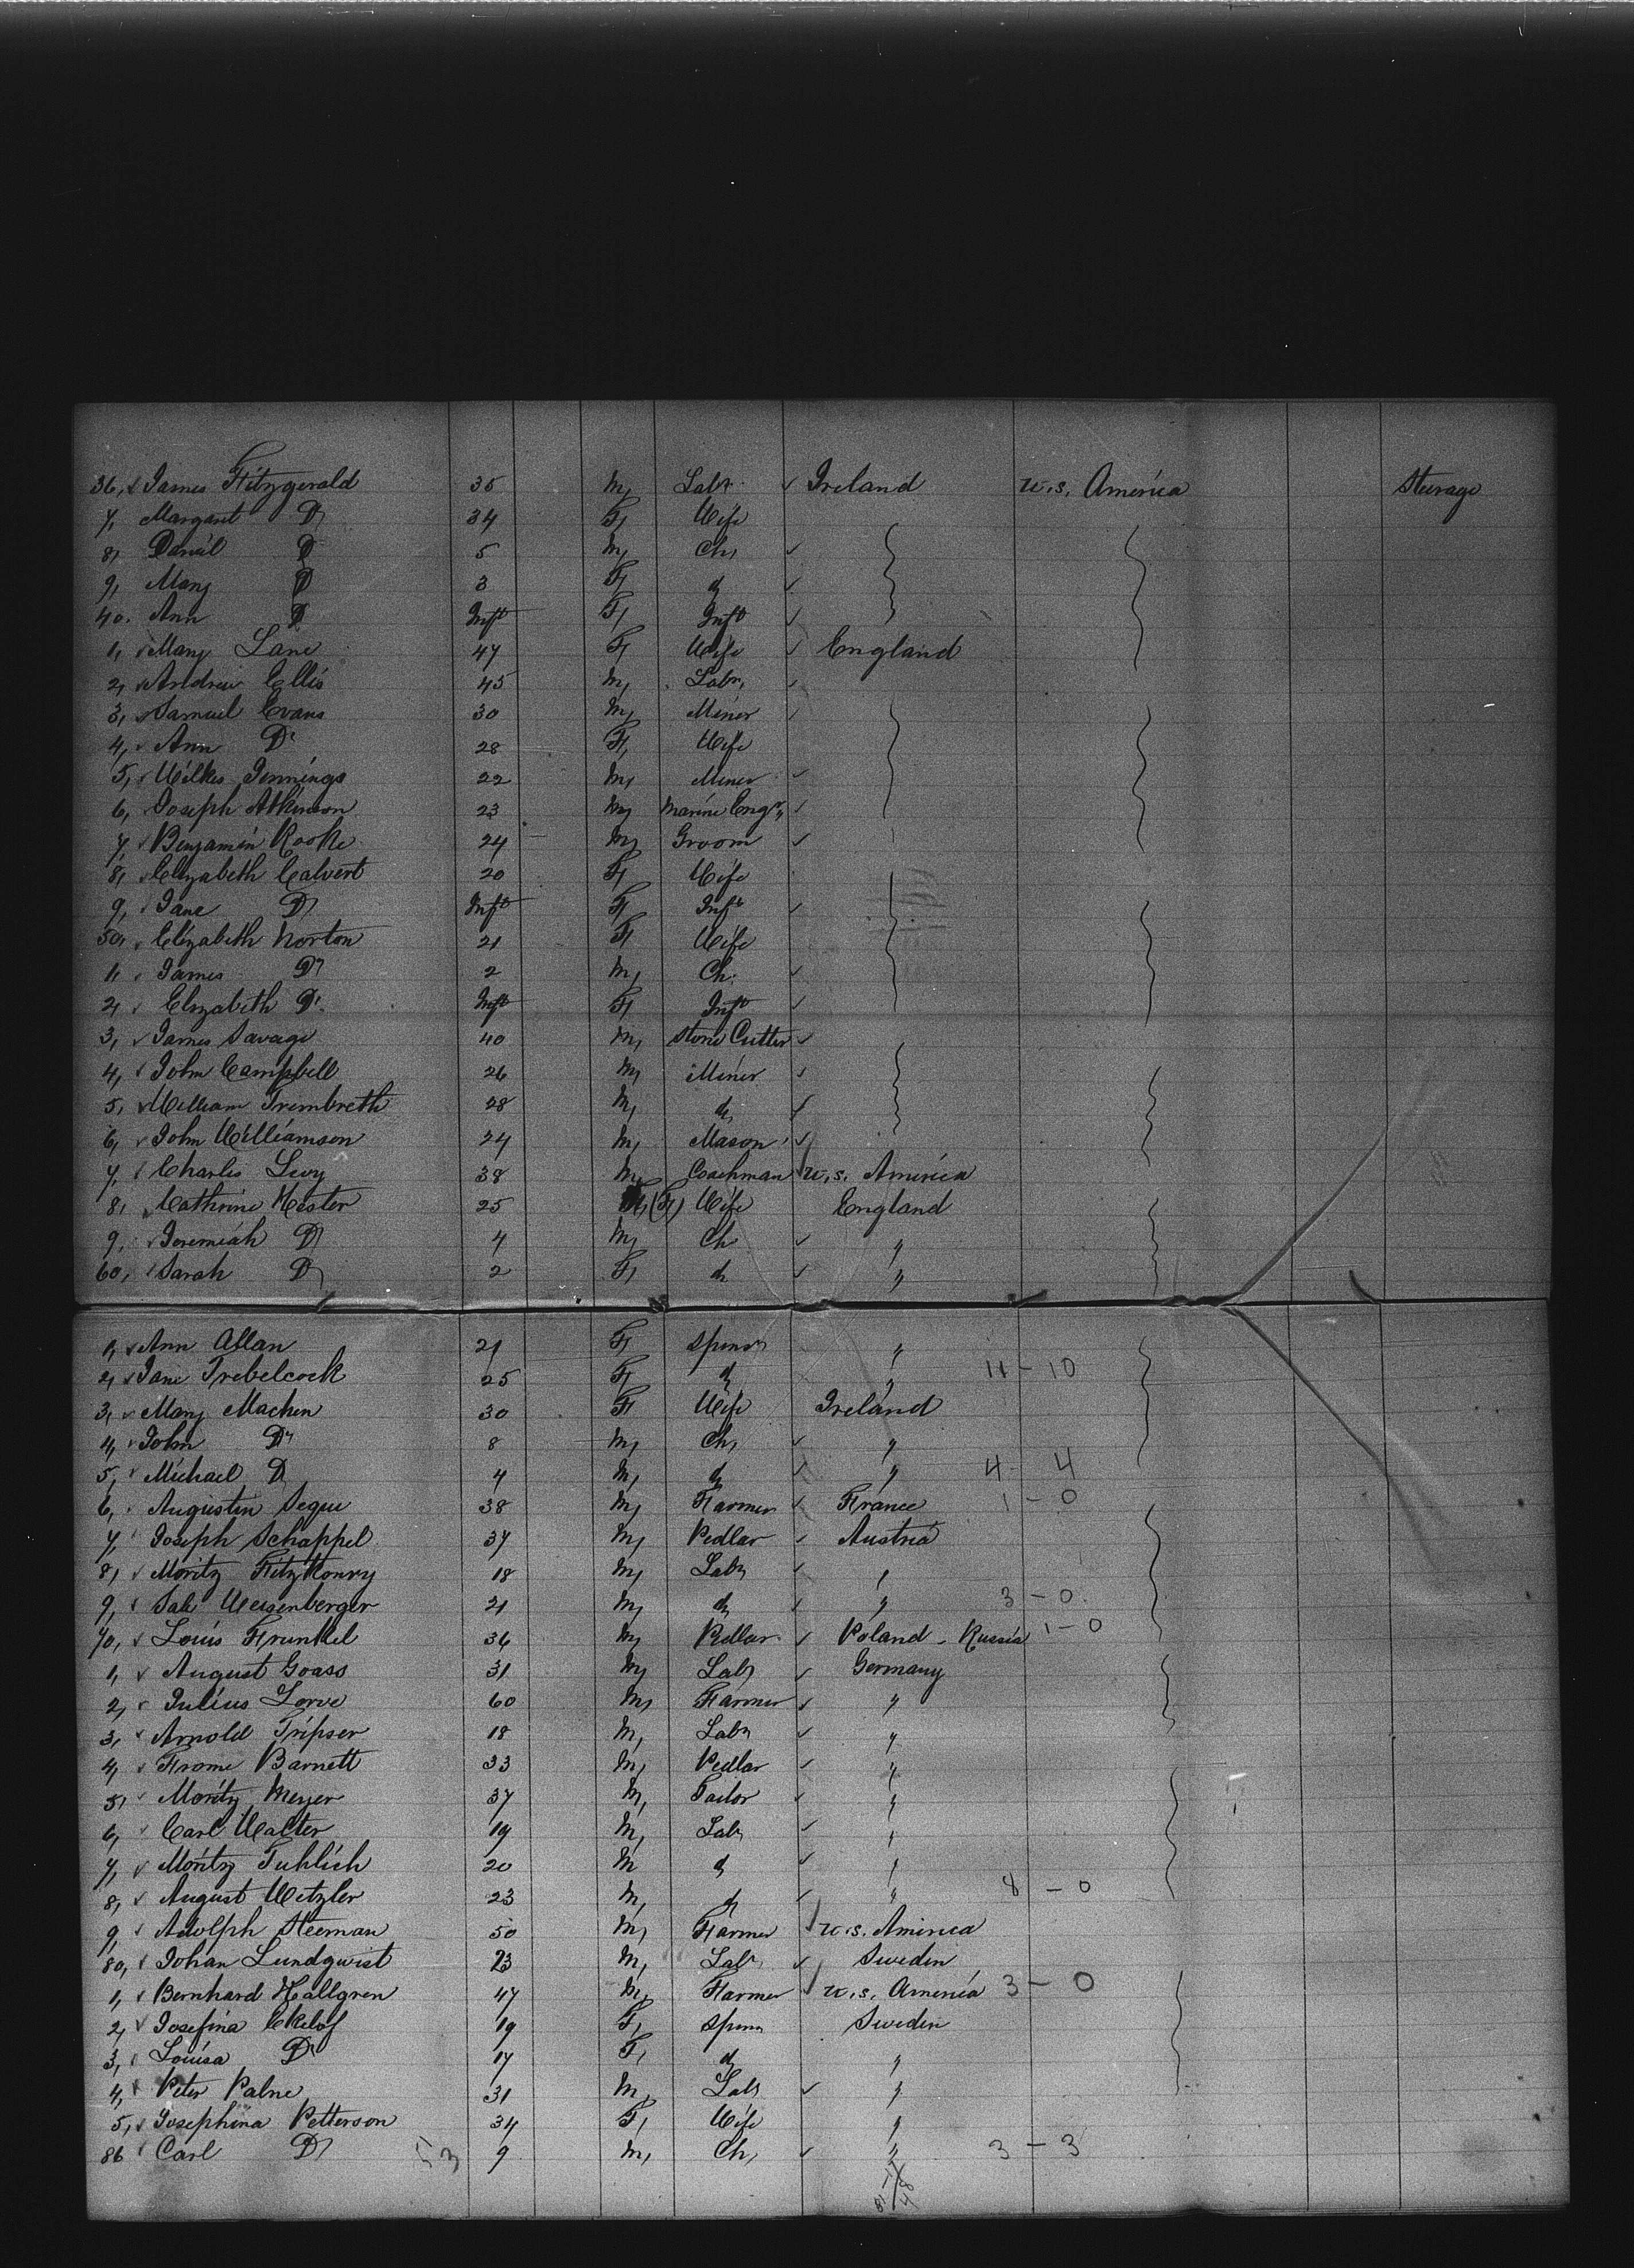 36, James Fitzgerald 35 M, Labr Ireland U.S. America Steerage
7, Margaret Do 34 F, Wife
8, Daniel Do 5 M, Ch,
9, Mary Do 3 F, do
40. Ann Do Inft F, Inft
1, Mary Lane 47 F, Wife England
2, Andrew Ellis 45 M, Labr,
3, Samuel Evans 30 M, Miner
4, Ann Do 28 F, Wife
5, Wilkes Jennings 22 M, Miner
6, Joseph Atkinson 23 M, Marine Engr,
7, Benjamin Rooke 24 M, Groom
8, Elizabeth Calvert 20 F, Wife
9, Jane Do Inft F, Inft
50, Elizabeth Norton 21 F, Wife
1, James Do 2 M, Ch.
2, Elizabeth Do Inft F, Inft
3, James Savage 40 M, Stone Cutter
4, John Campbell 26 M, Miner
5, William Trembreth 28 M, do
6, John Williamson 24 M, Mason
7, Charles Levy 38 M, Coachman U.S. America
8, Cathrine Hester 25 (F) Wife England
9, Jeremiah Do 4 M, Ch "
60, Sarah Do 2 F, do "
1, Ann Allan 21 F, Spinsr "
2, Jane Trebelcock 25 F, do " 11 - 10
3, Mary Machen 30 F, Wife Ireland
4, John Do 8 M, Ch, "
5, Michael Do 4 M, do " 4 - 4
6, Augustin Segue 38 M, Farmer France 1 - 0
7, Joseph Schappel 37 M, Pedlar Austria
8, Moritz 18 M, Labr "
9, Sali Weisenberger 21 M, do " 3 - 0
70, Louis Frunkel 36 M, Pedlar Poland - Russia 1 - 0
1, August Goass 31 M, Labr Germany
2, Julius Lorve 60 M, Farmer "
3, Arnold Tripser 18 M, Labr "
4, Frome Barnett 33 M, Pedlar "
5, Moritz Meyer 37 M, Tailor "
6, Carl Walter 19 M, Labr "
7, Moritz Tuhlich 20 M do "
8, August Wetzler 23 M, do " 8 - 0
9, Adolph Heeman 50 M, Farmer U.S. America
80, Johan Lundqwist 23 M, Labr Sweden
1, Bernhard Hallgren 47 M, Farmer U.S. America 3 - 0
2, Josefina Ekelof 19 F, Spinsr Sweden
3, Louisa Do 17 F, do "
4, Peter Palne 31 M, Labr "
5, Josephina Petterson 34 F, Wife "
86 Carl Do 53 9 M, Ch, " 3 - 3